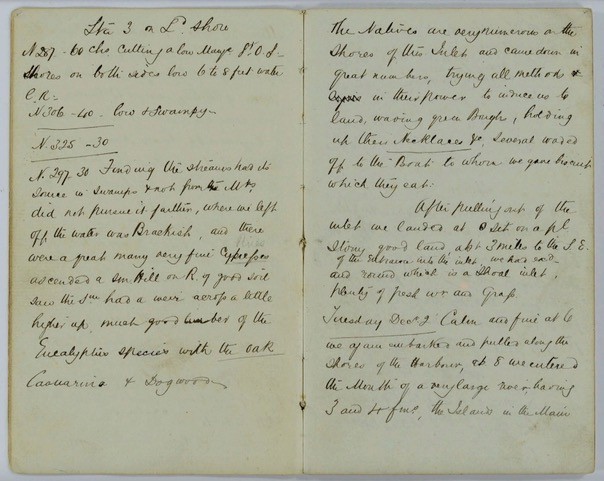 Stn 3 on Ld Shore
N 287 - 60 chs cutting a low
Shores on both sides low 6 to 8 feet water
C. R -
N 306 - 40 - low & Swampy -
N. 325 - 30
N. 297 30 Finding the streams had its
Source in Swamps & not from the Mts
did not pursue it further, where we left
off the water was Brackish, and there
were a great many very fine Cypresses
ascended a sm Hill on R. of good soil
saw the had a weir across a little
higher up, much good of the
Eucalyptus species with the oak
Casuarina & Dogwood
The Natives are very numerous on the
Shores of this Inlet and came down in
great numbers, trying all methods &
in their power to induce us to
land, waving green Boughs, holding
up their Necklaces &c, Several waded
off to the Boat to whom we gave biscuit
which they eat.
After pulling out of the
inlet we landed at set on a pt
Stony good land, abt 3 miles to the S. E.
of the Entrance into the inlet, we had
and round which is a Shoal inlet,
plenty of fresh wr and Grass
Tuesday Decr 2d Calm and fine at 6
we again embarked and pulled along the
Shores of the Harbour, at 8 we entered
the Mouth of a very large river, having
3 and 4 fms, the Island in the Main